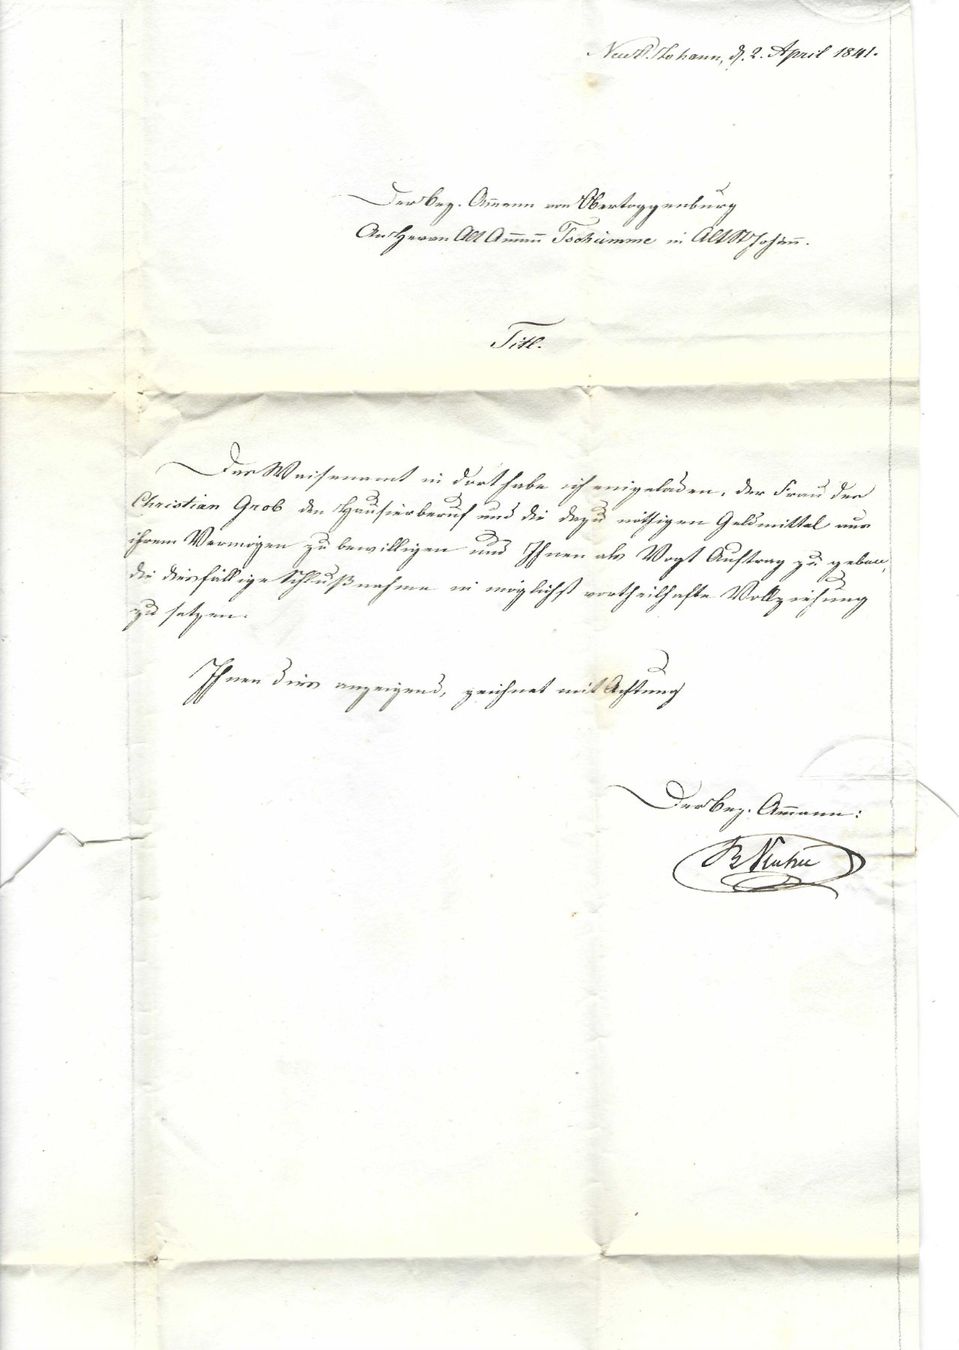 Neu St. Johann, d. 2. April 1841.
Der Bez. Ammann von Obertoggenburg
An Herrn Alt Ammann Tschümme in Alt St Johann.
Titl.
Das Waisenamt in dort habe ich eingeladen, der Frau des
Christian Grob den Hausierberuf und die dazu nöthigen Geldmittel aus
ihrem Vermögen zu bewilligen und Ihnen als Vogt Auftrag zu geben,
die diesfällige Schlußnahme in möglichst vortheilhafte Vollziehung
zu setzen.
Ihnen dies anzeigend, zeichnet mit Achtung
Der Bez. Ammann: